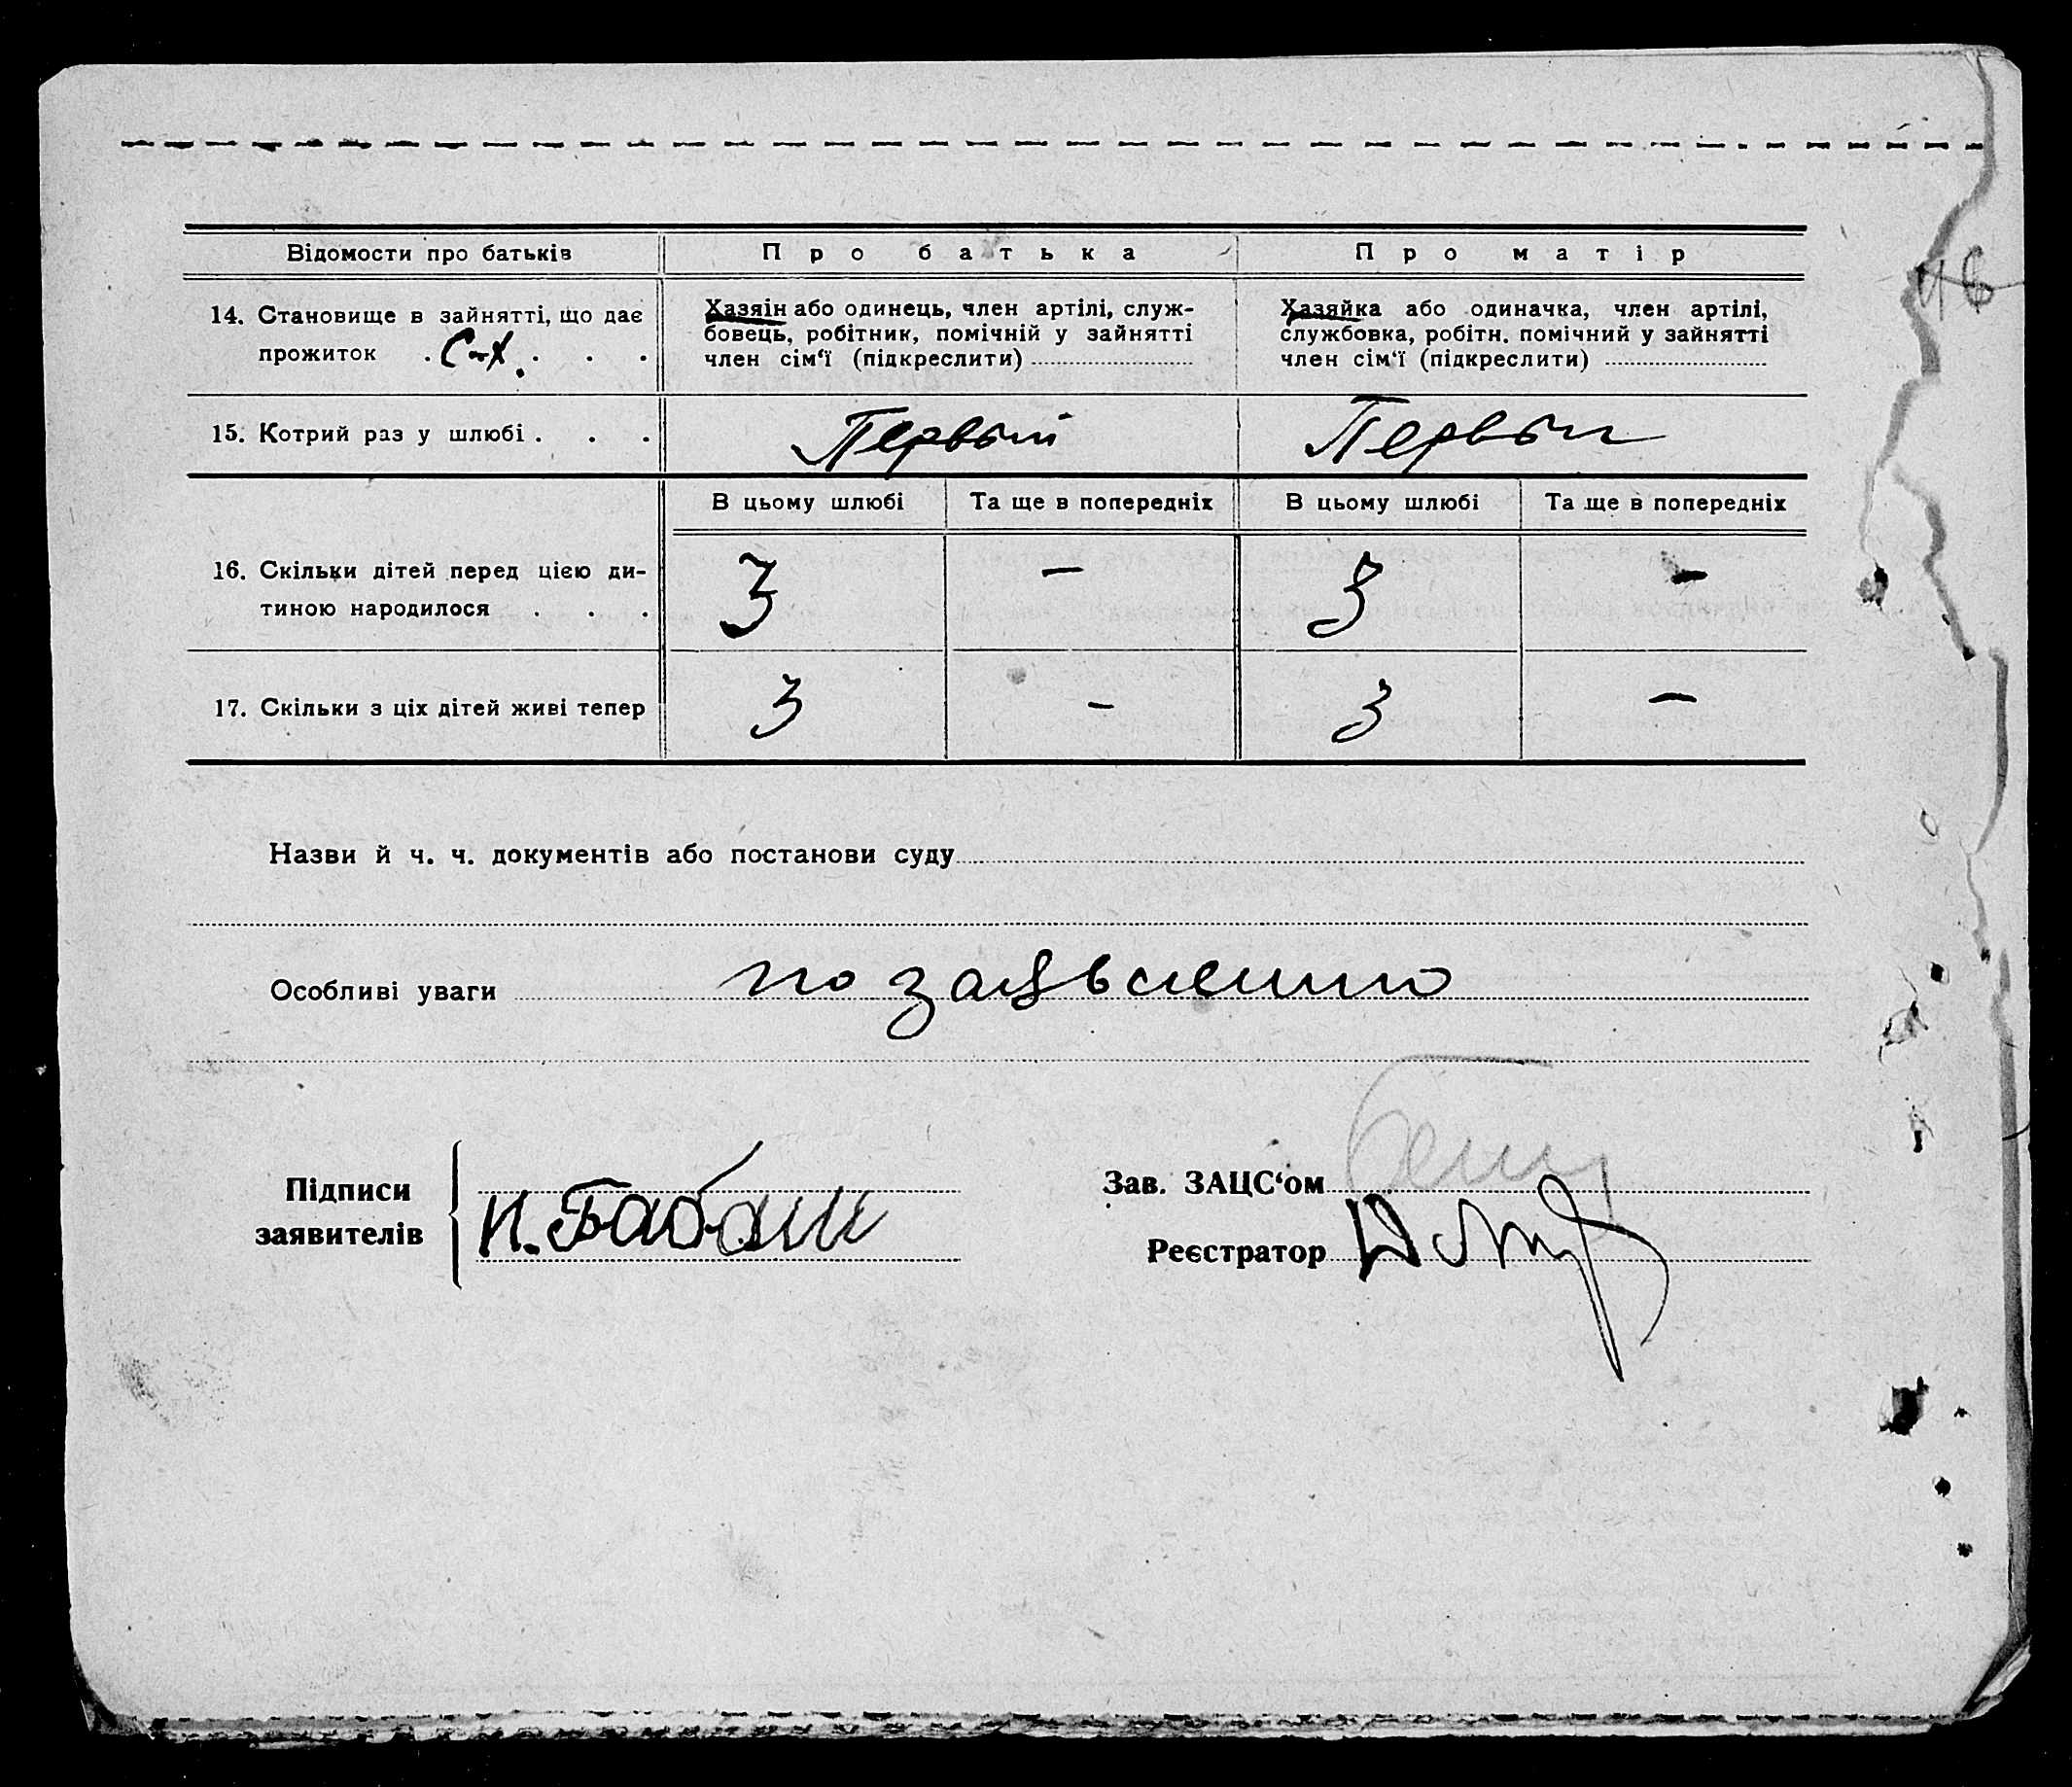 118
Відомости про батьків
Про батька
Про матір
14. Становище в зайнятті, що дає
прожиток . С-х. . . .
Хазяін або одинець, член артілі, служ-
бовець, робітник, помічній у зайнятті
член сім‘ї (підкреслити)
Хазяйка або одиначка, член артілі,
службовка, робітн. помічний у зайнятті
член сім‘ї (підкреслити)
15. Котрий раз у шлюбі . . .
Первый
Первый
В цьому шлюбі
Та ще в попередніх
В цьому шлюбі
Та ще в попередніх
16. Скільки дітей перед цією ди-
тиною народилося . . .
3
–
3
–
17. Скільки з ціх дітей живі тепер
3
–
3
–
Назви й ч. ч. документів або постанови суду
Особливі уваги по заявлению
Підписи
заявителів
И. Бабанин
Зав. ЗАЦС‘ом
Реєстратор